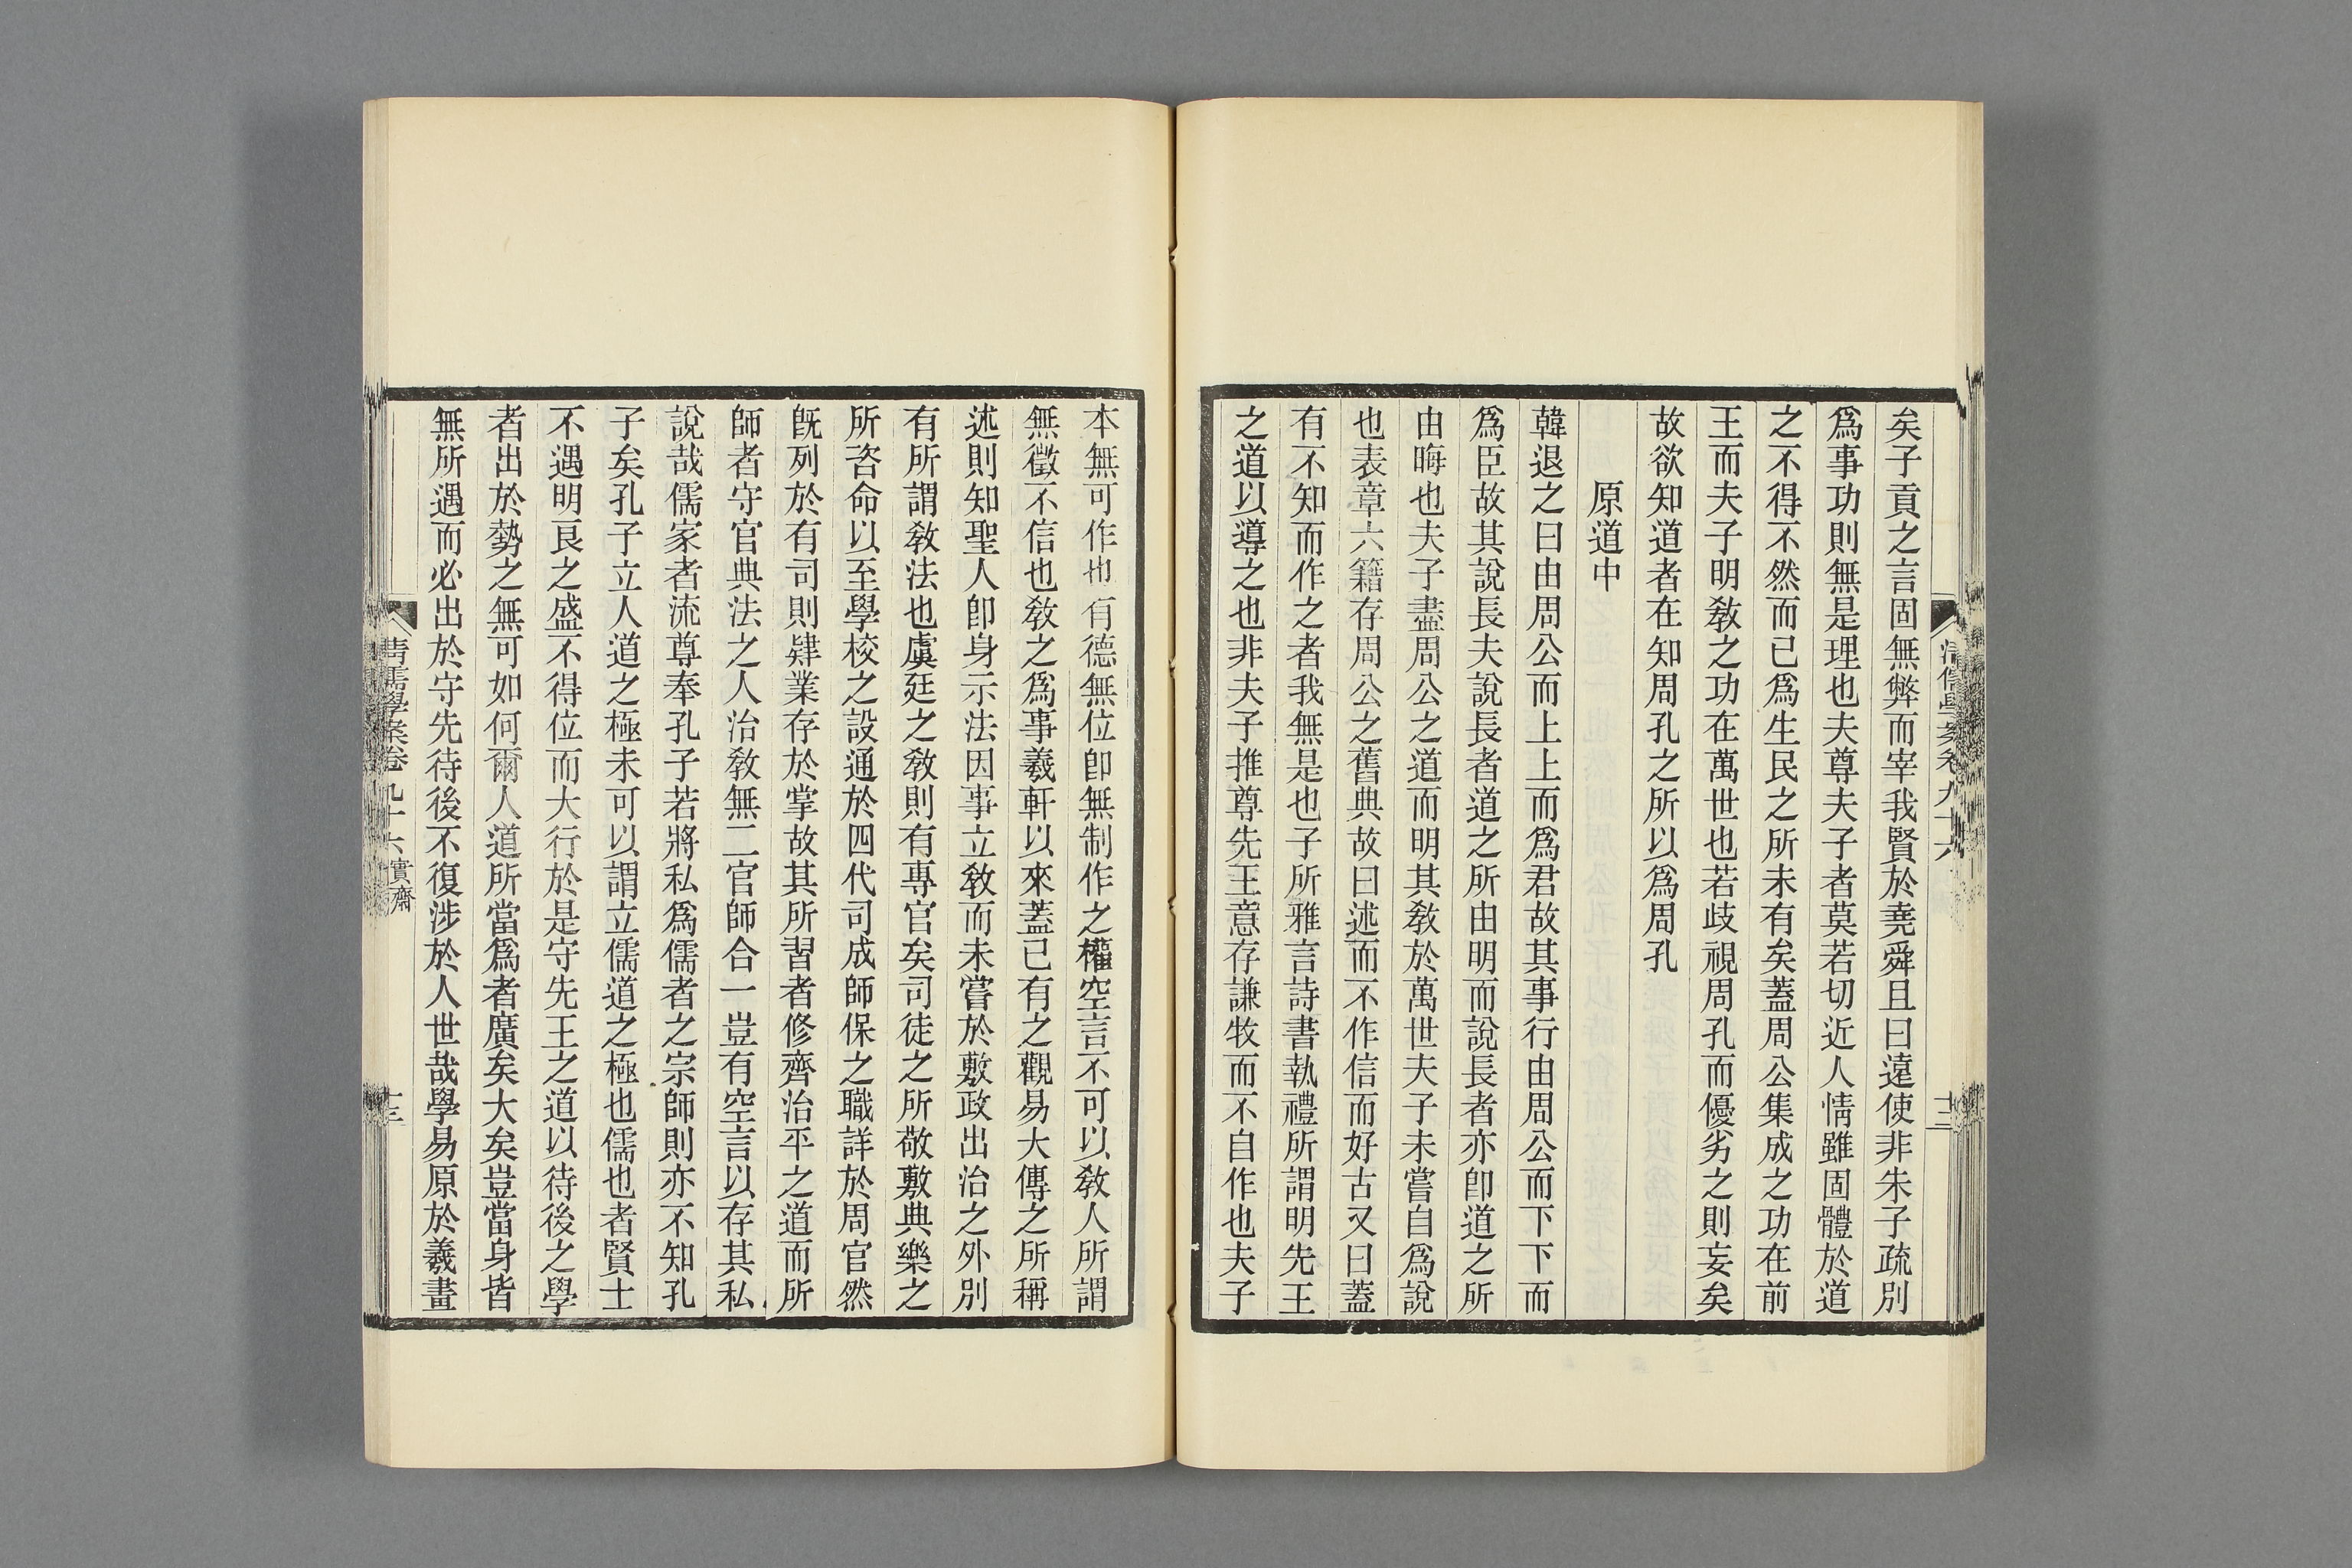 矣子貢之言固無弊而宰我賢於堯舜且曰遠使非朱子疏別
爲事功則無是理也夫尊夫子者莫若切近人情雖固體於道
之不得不然而已爲生民之所未有矣蓋周公集成之功在前
王而夫子明敎之功在萬世也若歧視周孔而優劣之則妄矣
故欲知道者在知周孔之所以爲周孔
原道中
韓退之曰由周公而上上而爲君故其事行由周公而下下而
爲臣故其說長夫說長者道之所由明而說長者亦卽道之所
由晦也夫子盡周公之道而明其敎於萬世夫子未嘗自爲說
也表章六籍存周公之舊典故曰述而不作信而好古又曰蓋
有不知而作之者我無是也子所雅言詩書執禮所謂明先王
之道以導之也非夫子推尊先王意存謙牧而不自作也夫子
本無可作也有德無位卽無制作之權空言不可以敎人所謂
無徵不信也敎之爲事羲軒以來蓋已有之觀易大傳之所稱
述則知聖人卽身示法因事立敎而未嘗於敷政出治之外別
有所謂敎法也虞廷之敎則有專官矣司徒之所敬敷典樂之
所咨命以至學校之設通於四代司成師保之職詳於周官然
旣列於有司則肄業存於掌故其所習者修齊治平之道而所
師者守官典法之人治敎無二官師合一豈有空言以存其私
說哉儒家者流尊奉孔子若將私爲儒者之宗師則亦不知孔
子矣孔子立人道之極未可以謂立儒道之極也儒也者賢士
不遇明良之盛不得位而大行於是守先王之道以待後之學
者出於勢之無可如何爾人道所當爲者廣矣大矣豈當身皆
無所遇而必出於守先待後不復涉於人世哉學易原於羲畫
清儒學案卷九十六 實齋
十三